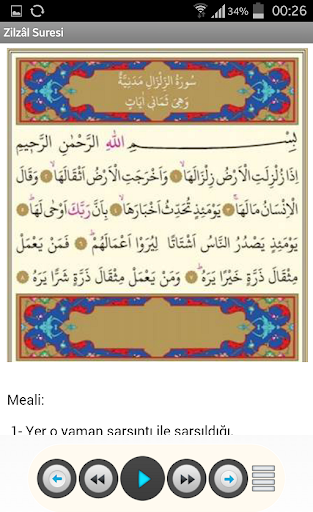 34% 00:26
Zilzâl Suresi
سُورَةُ الزِّلْزَالِ مَدَنِيَّةٌ
وَهِيَ ثَمَانِي اٰيَاتٍ
بِسْمِ اللّٰهِ الرَّحْمٰنِ الرَّحِيمِ
اِذَا زُلْزِلَتِ الْاَرْضُ زِلْزَالَهَاۙ ١ وَاَخْرَجَتِ الْاَرْضُ اَثْقَالَهَاۙ ٢ وَقَالَ
الْاِنْسَانُ مَالَهَاۚ ٣ يَوْمَئِذٍ تُحَدِّثُ اَخْبَارَهَاۙ ٤ بِاَنَّ رَبَّكَ اَوْحٰى لَهَاۜ ٥
يَوْمَئِذٍ يَصْدُرُ النَّاسُ اَشْتَاتًا لِيُرَوْا اَعْمَالَهُمْۜ ٦ فَمَنْ يَعْمَلْ
مِثْقَالَ ذَرَّةٍ خَيْرًا يَرَهُۜ ٧ وَمَنْ يَعْمَلْ مِثْقَالَ ذَرَّةٍ شَرًّا يَرَهُ ٨
Meali:
1- Yer o yaman sarsıntı ile sarsıldığı,